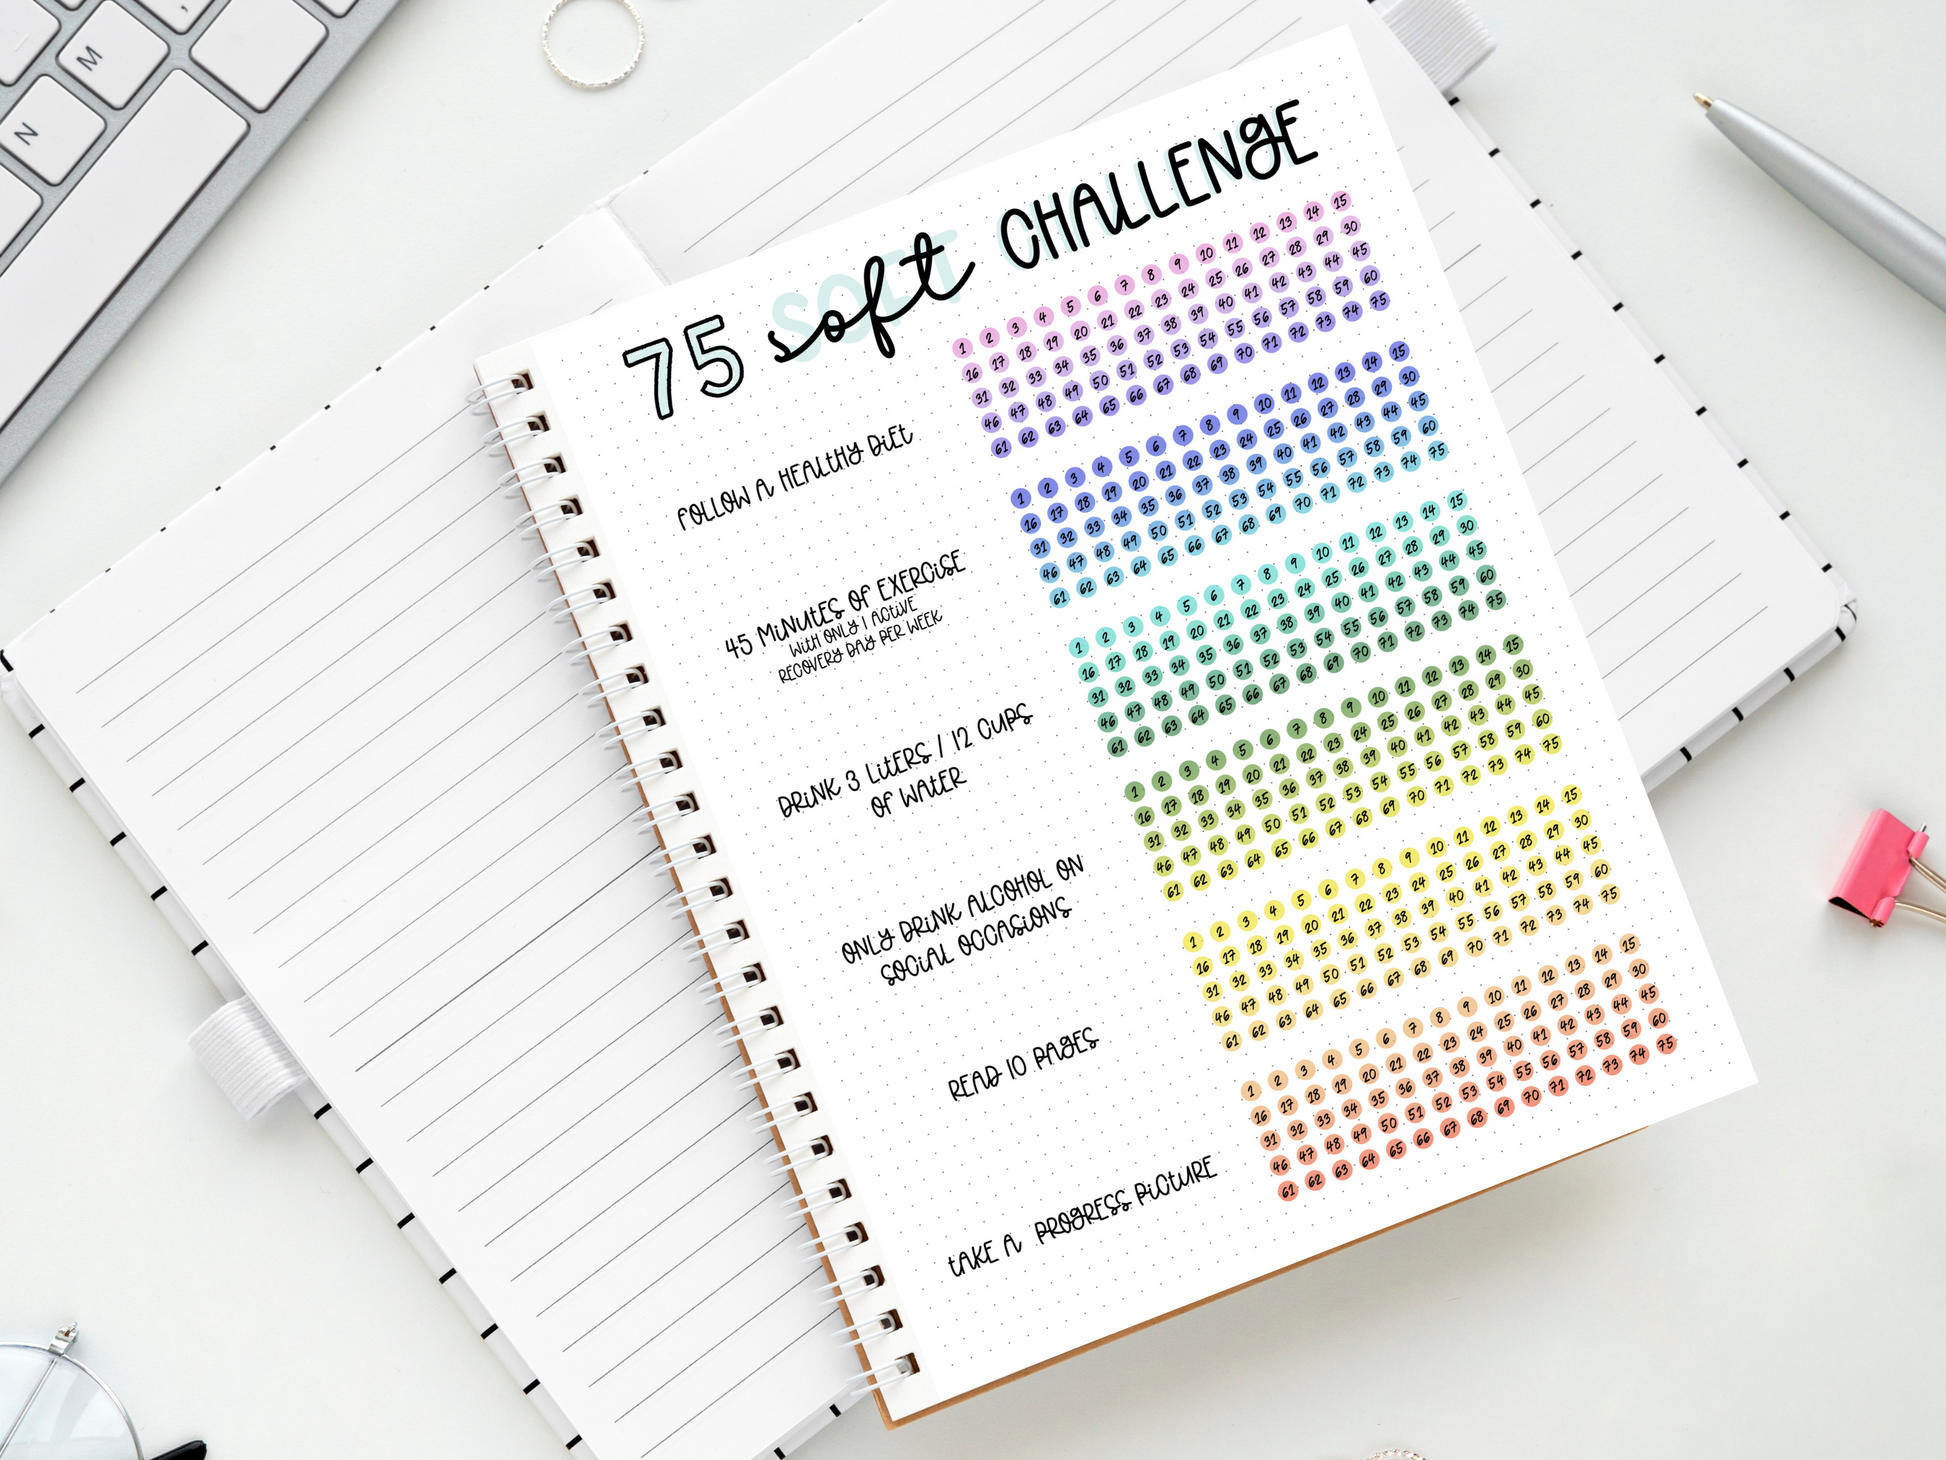 M
N
75 soft CHALLENGE
SOFT
FOLLOW A HEALTHY DIET
1 2 3 4 5 6 7 8 9 10 11 12 13 14 15
16 17 18 19 20 21 22 23 24 25 26 27 28 29 30
31 32 33 34 35 36 37 38 39 40 41 42 43 44 45
46 47 48 49 50 51 52 53 54 55 56 57 58 59 60
61 62 63 64 65 66 67 68 69 70 71 72 73 74 75
45 MINUTES OF EXERCISE
WITH ONLY 1 ACTIVE
RECOVERY DAY PER WEEK
1 2 3 4 5 6 7 8 9 10 11 12 13 14 15
16 17 18 19 20 21 22 23 24 25 26 27 28 29 30
31 32 33 34 35 36 37 38 39 40 41 42 43 44 45
46 47 48 49 50 51 52 53 54 55 56 57 58 59 60
61 62 63 64 65 66 67 68 69 70 71 72 73 74 75
DRINK 3 LITERS / 12 CUPS
OF WATER
1 2 3 4 5 6 7 8 9 10 11 12 13 14 15
16 17 18 19 20 21 22 23 24 25 26 27 28 29 30
31 32 33 34 35 36 37 38 39 40 41 42 43 44 45
46 47 48 49 50 51 52 53 54 55 56 57 58 59 60
61 62 63 64 65 66 67 68 69 70 71 72 73 74 75
ONLY DRINK ALCOHOL ON
SOCIAL OCCASIONS
1 2 3 4 5 6 7 8 9 10 11 12 13 14 15
16 17 18 19 20 21 22 23 24 25 26 27 28 29 30
31 32 33 34 35 36 37 38 39 40 41 42 43 44 45
46 47 48 49 50 51 52 53 54 55 56 57 58 59 60
61 62 63 64 65 66 67 68 69 70 71 72 73 74 75
READ 10 PAGES
1 2 3 4 5 6 7 8 9 10 11 12 13 14 15
16 17 18 19 20 21 22 23 24 25 26 27 28 29 30
31 32 33 34 35 36 37 38 39 40 41 42 43 44 45
46 47 48 49 50 51 52 53 54 55 56 57 58 59 60
61 62 63 64 65 66 67 68 69 70 71 72 73 74 75
TAKE A PROGRESS PICTURE
1 2 3 4 5 6 7 8 9 10 11 12 13 14 15
16 17 18 19 20 21 22 23 24 25 26 27 28 29 30
31 32 33 34 35 36 37 38 39 40 41 42 43 44 45
46 47 48 49 50 51 52 53 54 55 56 57 58 59 60
61 62 63 64 65 66 67 68 69 70 71 72 73 74 75